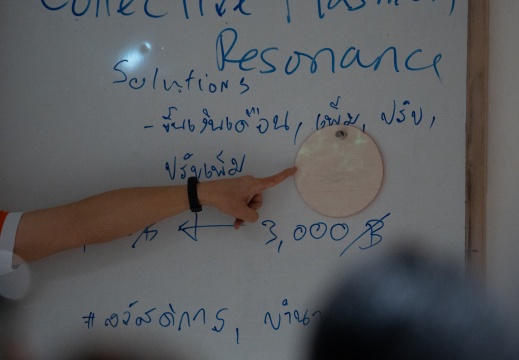 Collective Plasmon
Resonance
Solutions
- ขึ้นเงินเดือน, เพิ่ม, ปรับ,
ปรับเพิ่ม
3,000 ฿
#สวัสดิการ,